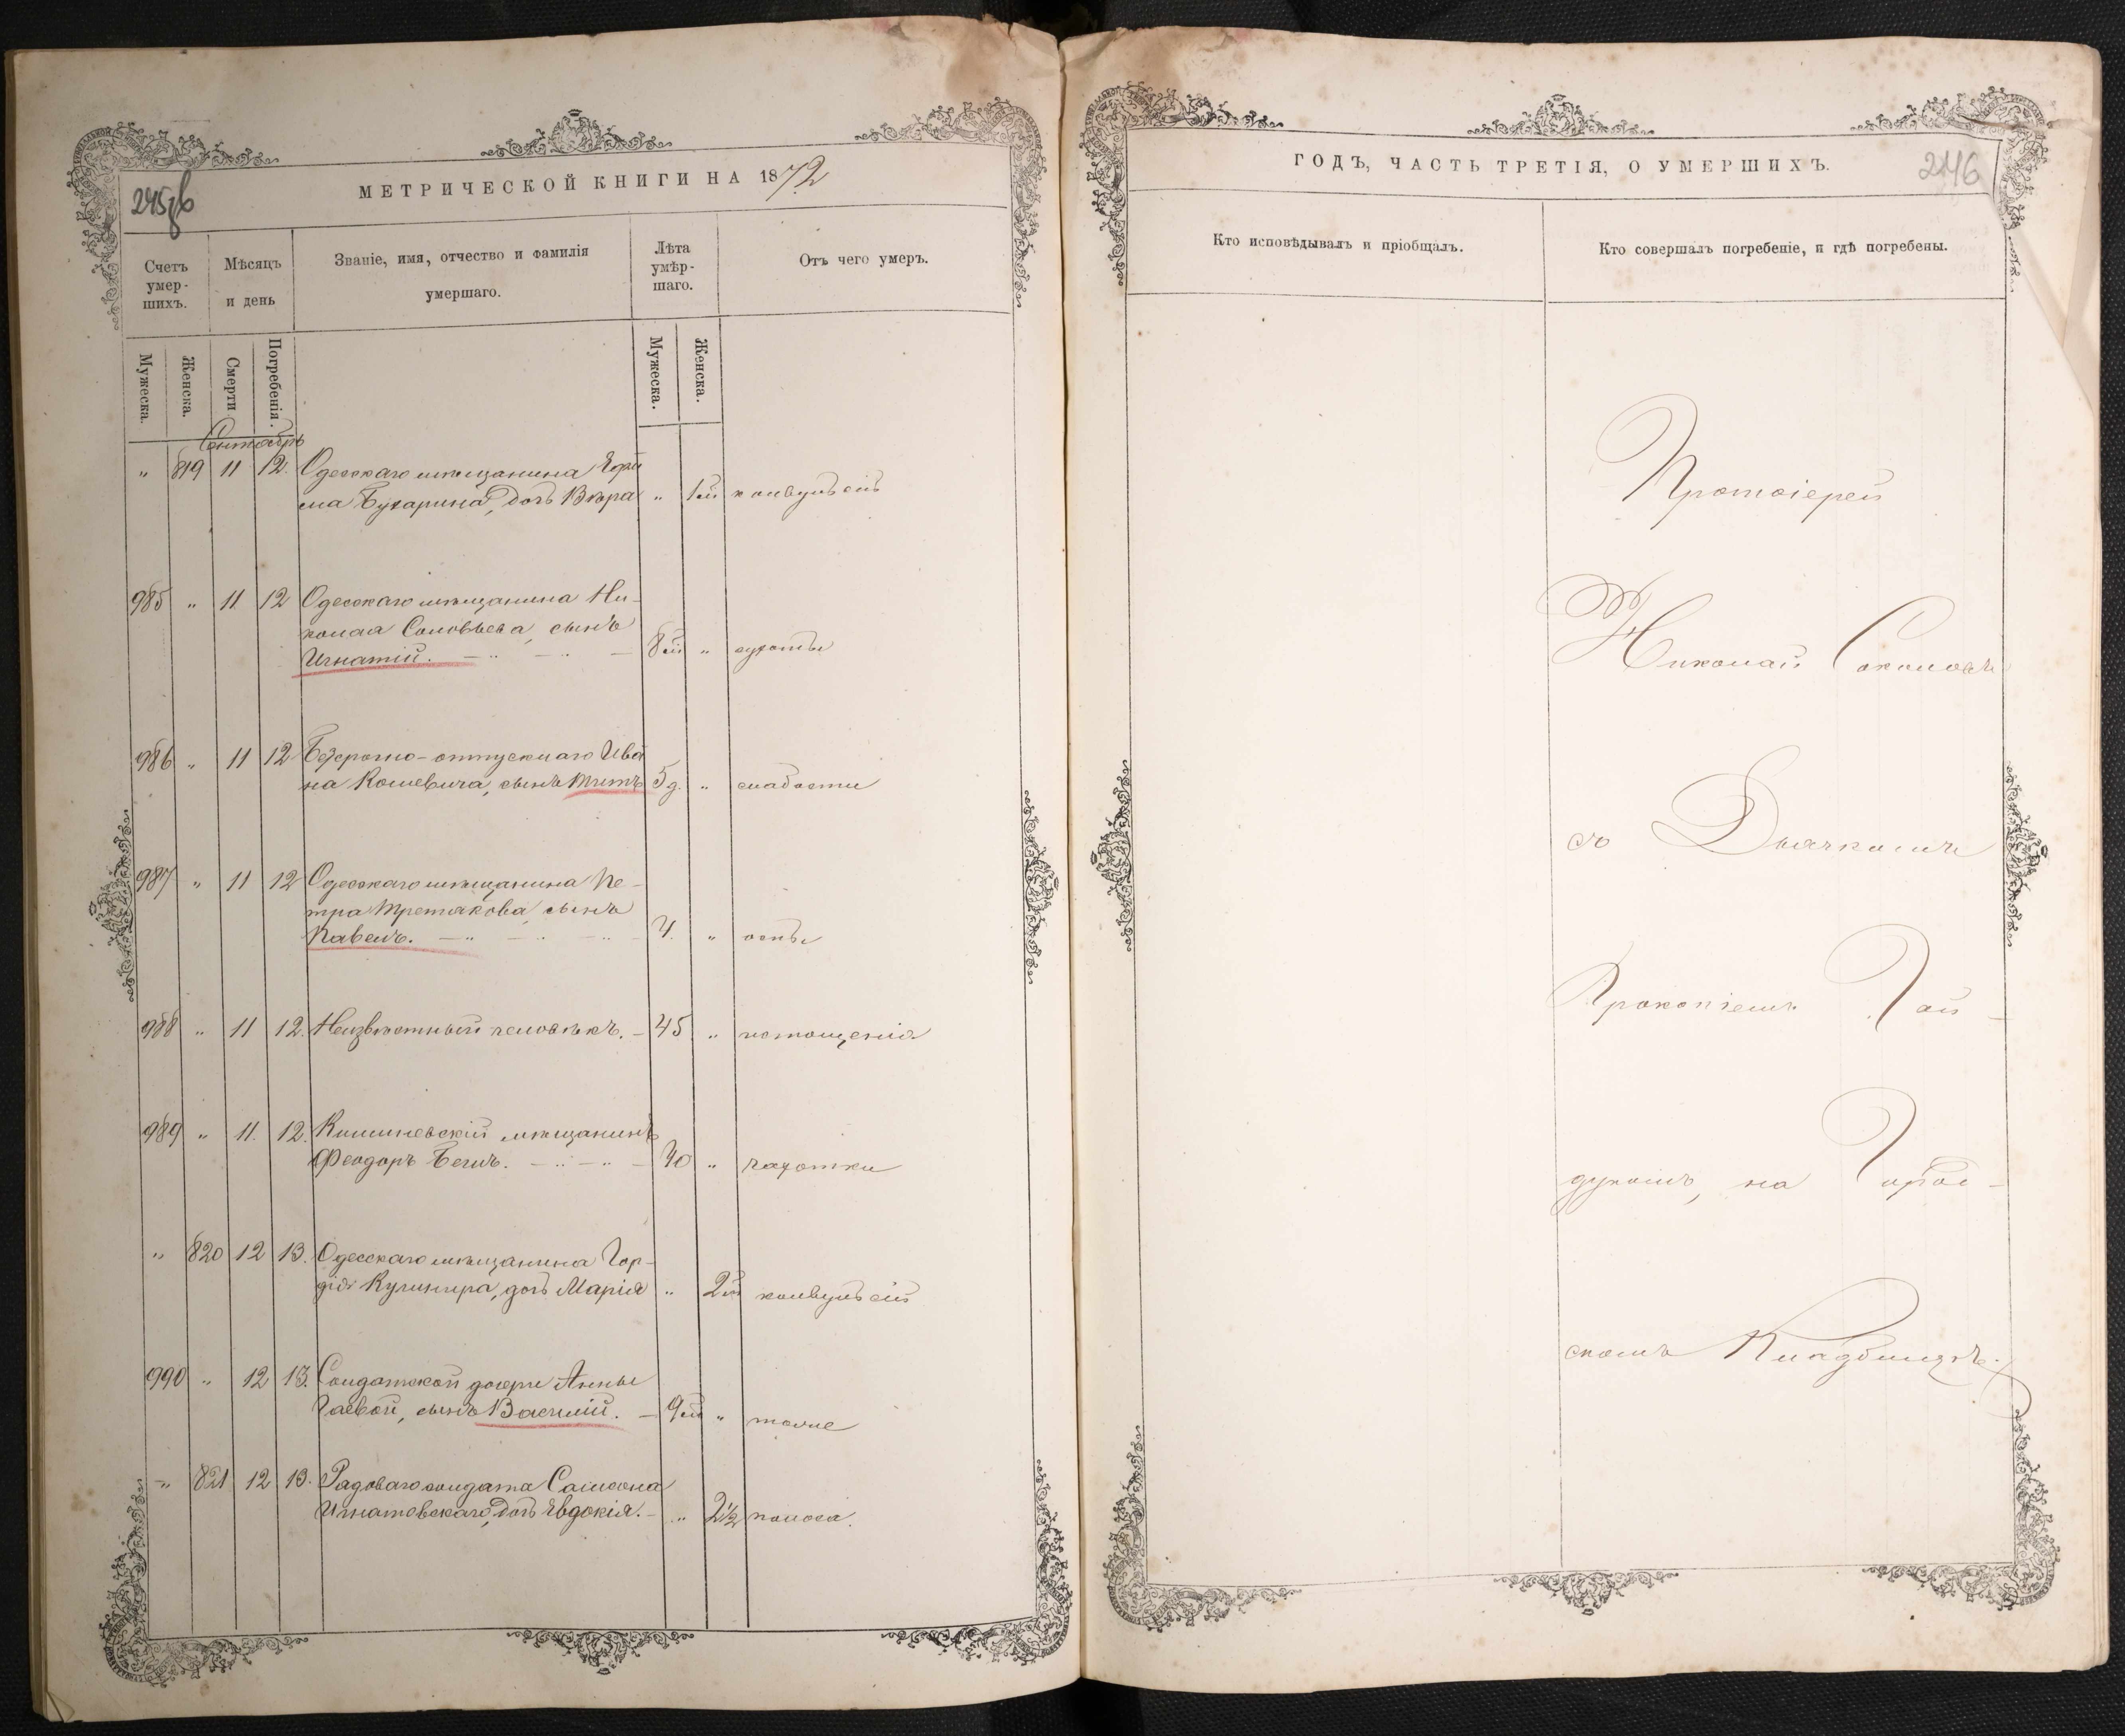 245 об
МЕТРИЧЕСКОЙ КНИГИ НА 1872
Счетъ умер-шихъ.
Мѣсяцъ и день
Званіе, имя, отчество и фамилія умершаго.
Лѣта умѣр-шаго.
Отъ чего умеръ.
Мужеска.
Женска.
Смерти
Погребенія.
Мужеска.
Женска.
Сентябрь
" 819 11 12. Одесскаго мѣщанина
Бухарина, дочь Вѣра " 1 м конвульсій
985 " 11 12 Одесскаго мѣщанина Ни-
колая Соловьева, сынъ
Игнатій. 8 м " сухоты
986 " 11 12 Безсрочно-отпускнаго Ива
на Кошевича, сынъ Титъ 5 д. " слабости
987 " 11 12 Одесскаго мѣщанина Пе-
тра Третякова, сынъ
Павелъ. " оспы
988 " 11 12. Неизвѣстный человѣкъ. 45 " истощенія
989 " 11. 12. Кишиневскій мѣщанинъ
Феодоръ 40 " чахотки
" 820 12 13. Одесскаго мѣщанина Гор-
дія Кушнира, дочь Марія " 2 м конвульсій
990 " 12 13. Солдатской дочери Анны
Гаевой, сынъ Василій. 9 м " тоже
" 821 12 13. Рядоваго солдата Самсона
Игнатовскаго, дочь Евдокія. " 2½ поноса.
ГОДЪ, ЧАСТЬ ТРЕТІЯ, О УМЕРШИХЪ.
246
Кто исповѣдывалъ и пріобщалъ.
Кто совершалъ погребеніе, и гдѣ погребены.
Протоіерей
Николай Соколовъ
съ Дьячкомъ
Прокопіемъ Гай-
дукомъ, на Город-
скомъ Кладбищѣ.